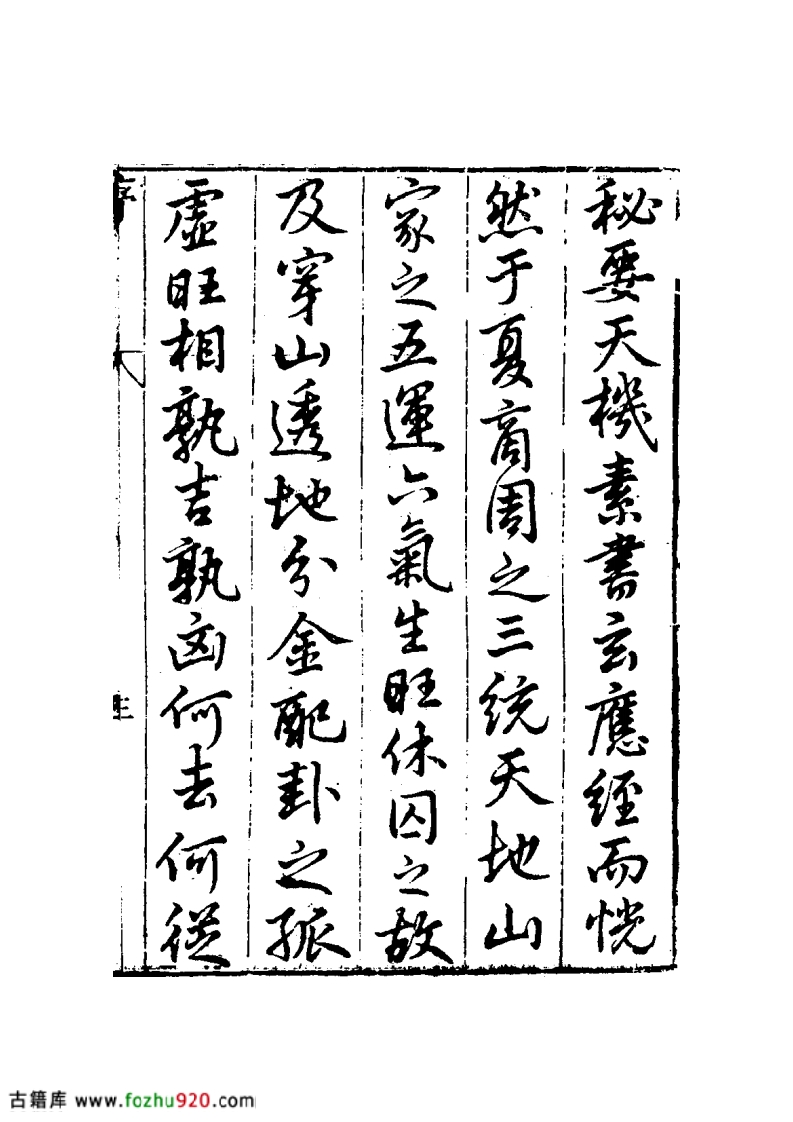 秘要天機素書玄應經而恍
然于夏商周之三統天地山
家之五運六氣生旺休囚之故
及穿山透地分金配卦之孤
虛旺相孰吉孰凶何去何從
序
古籍库 www.fozhu920.com